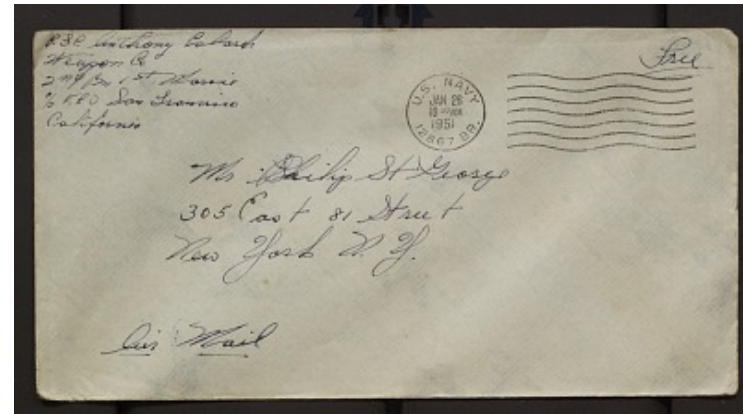 Anthony
Weapon Co
2nd Bn 1st Marine
c/o F.P.O San Francisco
California
Free
U.S. NAVY
JAN 26
1951
12867 BR.
Mr Philip St George
305 East 81 Street
New York N.Y.
Air Mail